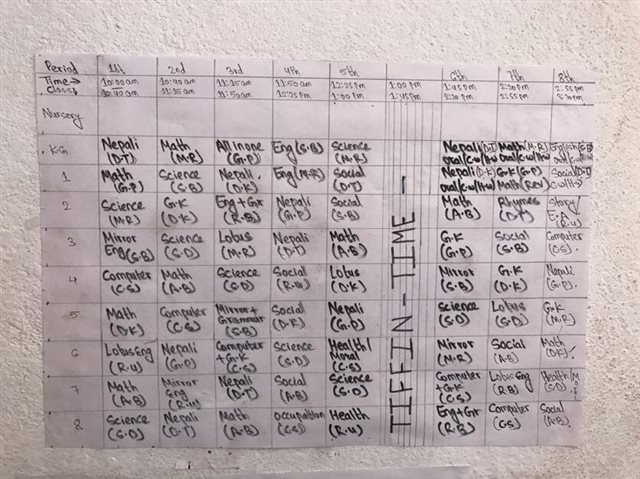 Period 1st 2nd 3rd 4th 5th 6th 7th 8th
Time→ 10:00 am 10:40 am 11:15 am 11:50 am 12:25 pm 1:00 pm 1:45 pm 2:20 pm 2:55 pm
Class↓ 10:40 am 11:15 am 11:50 am 12:25 pm 1:00 pm 1:45 pm 2:20 pm 2:55 pm 3:30 pm
Nursery
KG Nepali Math All in one Eng (S.B) Science Nepali (D.T) Math (M.R) English (S.B)
(D.T) (M.R) (G.P) (M.R) oral/c.w/H.w oral/c.w/H.w
1 Math Science Nepali Eng (M.R) Social Nepali (D.K) G.K (G.P) Social (D.T)
(G.P) (S.B) (D.K) (D.T) oral/c.w/H.w Math (Rev) c.w/H
2 Science G.K Eng + Gr Nepali Social Math Rhymes Story/
(M.R) (D.K) (R.B) (G.P) (S.B) (A.B) (D.T) E.A
3 Mirror Science Lotus Nepali Math G.K Social Computer
Eng (S.B) (S.D) (M.R) (D.T) (A.B) (G.P) (S.B) (C.S)
4 Computer Math Science Social Lotus Mirror G.K Nepali
(C.S) (A.B) (S.D) (R.U) (D.K) (S.B) (D.K) (G.P)
5 Math Computer Mirror + Social Nepali Science Lotus G.K
(D.K) (C.S) Grammar (D.K) (G.P) (S.D) (S.D) (M.R)
(S.B)
6 Lotus Eng Nepali Computer Science Health/ Mirror Social Math
(R.U) (G.P) + G.K (S.D) Moral (M.R) (A.B) (D.K)
(C.S) (C.S)
7 Math Mirror Nepali Social Science Computer Lotus Eng Health/
(A.B) Eng (D.T) (A.B) (S.D) + G.K (R.B) (S.D)
(R.U) (C.S)
8 Science Nepali Math Occupation Health Eng + Gr Computer Social
(S.D) (D.T) (A.B) (C.S) (R.U) (R.B) (C.S) (A.B)
TIFFIN - TIME -